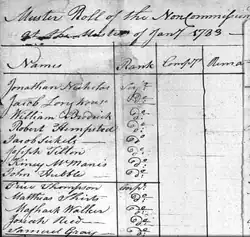 Muster Roll of the Noncommissi
at the Muster of Jany 1783
Names Rank Comp.y Rema
Jonathan Nicholas Serjt
Jacob Longhour Do
William Brodrick do
Robert Hempsted do
Jacob Sickels do
Joseph Tillon do
Kiney McManis do
John Hubble do
Price Thompson Corpl
Matthias do
Meshack Walker do
Josiah Reed do
Samuel Gray do